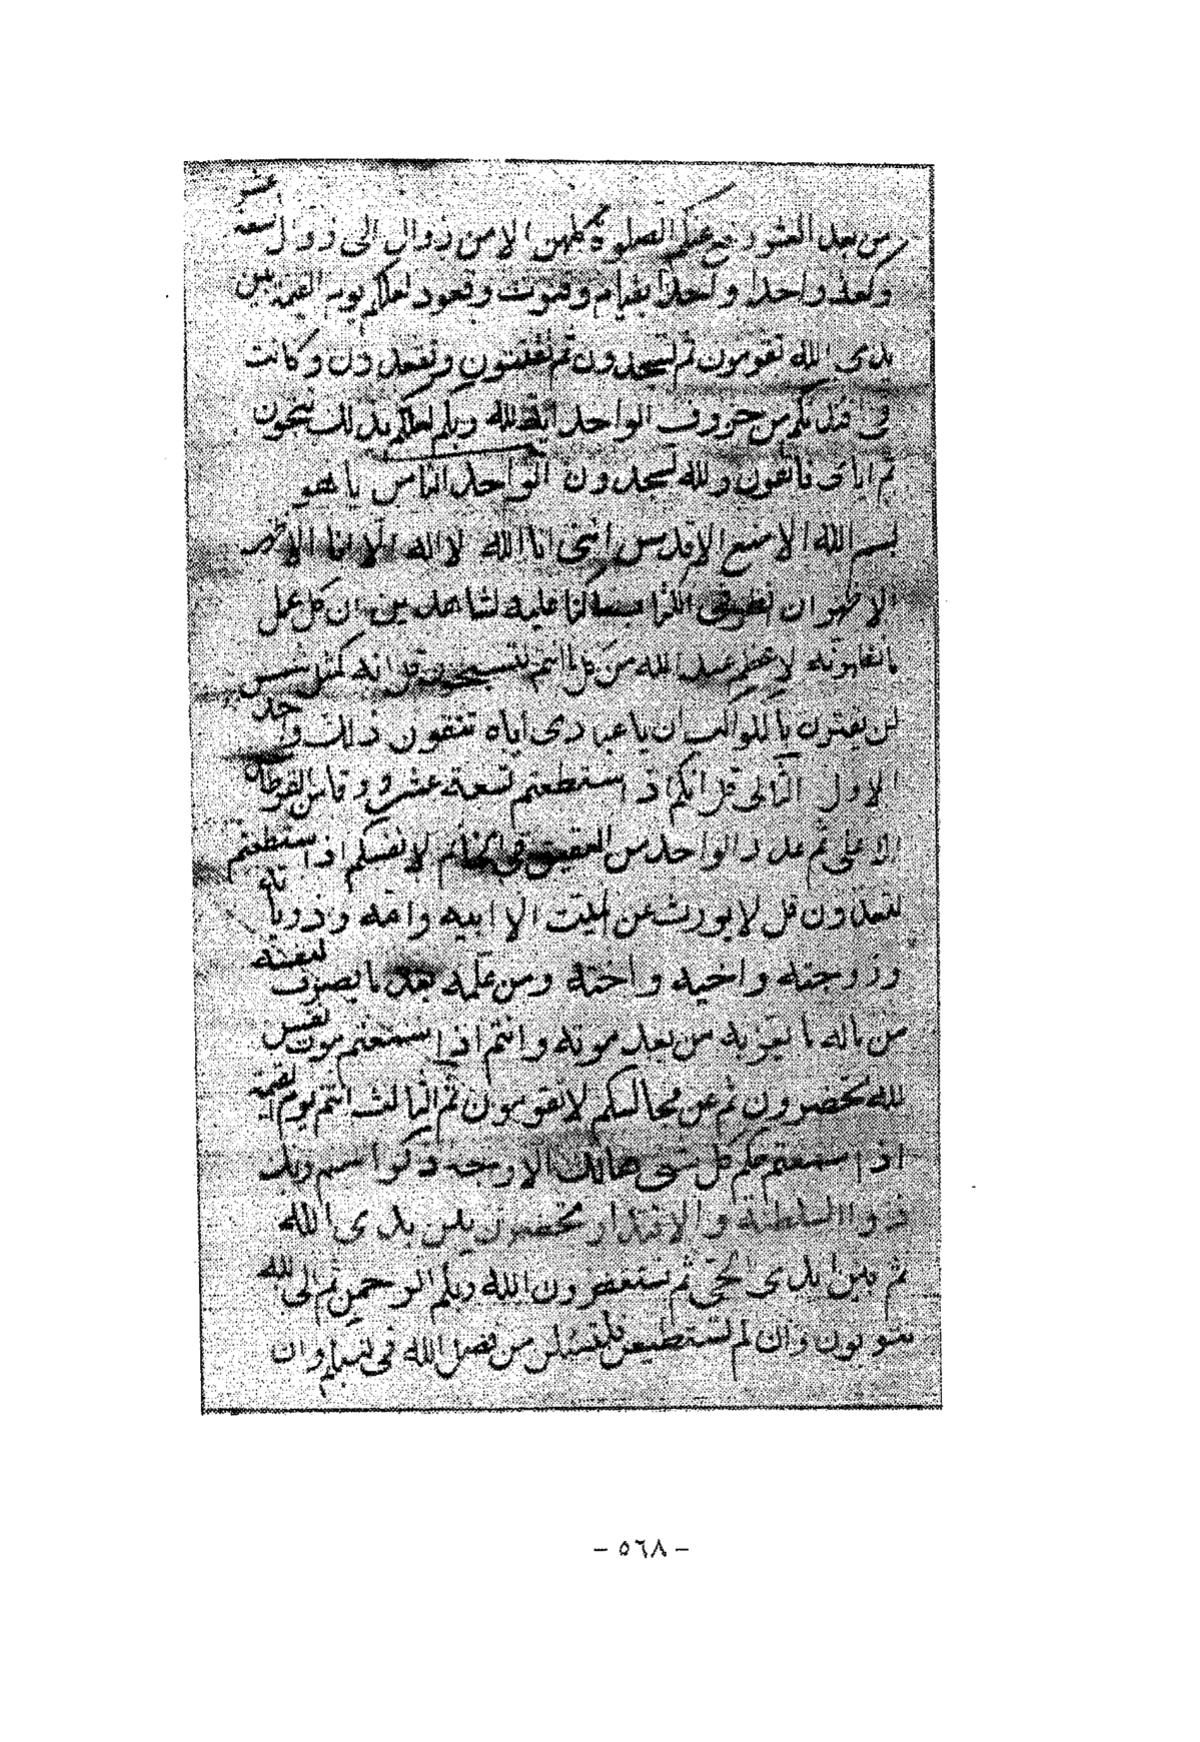 من بعد العشر رفع عنكم الصلوة كلهن الا من زوال الى زوال تسعة عشر
ركعة واحدا واحدا بقيام وقنوت وقعود لعلكم يوم القيمة بين
يدى الله تقومون ثم تسجدون ثم تقنتون وتقعدون وكانت
فى من حروف الواحد الله ربكم لعلكم بذلك تنجون
ثم اياى فاتقون ولله تسجدون الواحد الثامن يا هو
بسم الله الامنع الاقدس اننى انا الله لا اله الا انا الاظهر
الاظهر ان كنا عليه لشاهدين ان كل عمل
عند الله من كل ما انتم قل انه كمثل شمس
لن يقترن بالكواكب ان يا عبادى اياه تتقون ذلك واحد
الاول الثانى قل انكم اذ استطعتم تسعة عشر القرطاس
الاعلى ثم عدد الواحد من العقيق لانفسكم اذ استطعتم
لتعدون قل لا يورث عن الميت الا ابيه وامه وذرياته
وزوجته واخيه واخته ومن علمه بعد ما يصرف لنفسه
من ماله ما يعز به من بعد موته وانتم اذا استمعتم موت نفس
لله تحضرون ثم عن مجالسكم لا تقومون ثم الثالث انتم يوم القيمة
اذا استمعتم حكم كل شىء هالك الا وجه ربك
ذو السلطنة والاقتدار تحضرون بين يدى الله
ثم بين ايدى الحى ثم تستغفرون الله ربكم الرحمن ثم الى الله
تتوبون وان لم تستطيعن فلتسئلن من فضل الله فى وان
- ٥٦٨ -